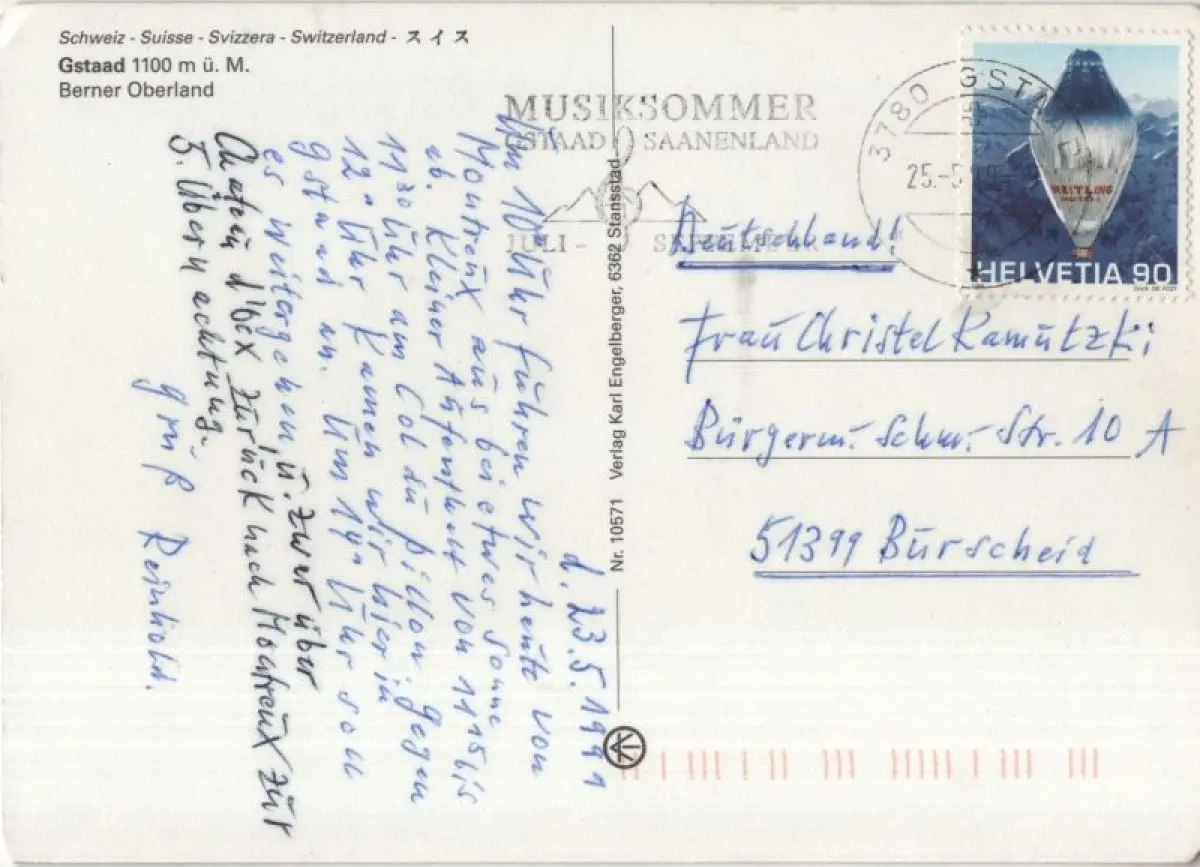 Schweiz - Suisse - Svizzera - Switzerland - スイス
Gstaad 1100 m ü. M.
Berner Oberland
MUSIKSOMMER
GSTAAD SAANENLAND
JULI - SEPTEMBER
3780 GSTAAD
25.-5
BREITLING
HELVETIA 90
d. 23.5.1999
Um 10 Uhr fuhren wir heute von
Montreux aus bei etwas Sonne
ab. Kleiner Aufenthalt von 11 15 bis
11 30 Uhr am Col du Pillon. gegen
12 Uhr Kamen wir hier in
Gstaad an. Um 14 Uhr soll
es weitergehen u. zwar über
Chateau d'Oex zurück nach Montreux zur
5. Übernachtung.
Gruß Reinhold.
Nr. 10571 Verlag Karl Engelberger, 6362 Stansstad
Deutschland!
Frau Christel Kamutzki
Bürgerm.-Schm.-Str. 10 A
51399 Burscheid